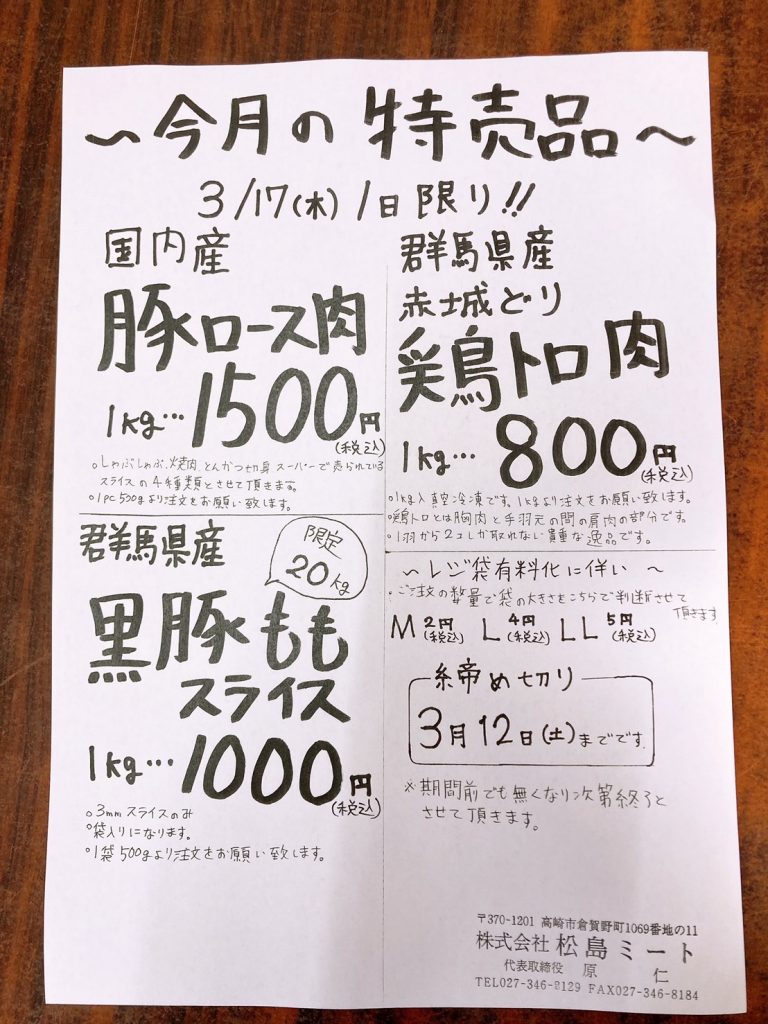 ~今月の特売品~
3/17(木) 1日限り!!
国内産
豚ロース肉
1kg…1500円
(税込)
○しゃぶしゃぶ、焼肉、とんかつ切身 スーパーで売られている
スライスの4種類とさせて頂きます。
○1PC500gより注文をお願い致します。
群馬県産
限定
20kg
黒豚もも
スライス
1kg…1000円
(税込)
○3mmスライスのみ
○袋入りになります。
○1袋500gより注文をお願い致します。
群馬県産
赤城どり
鶏トロ肉
1kg…800円
(税込)
○1kg入真空冷凍です。1kgより注文をお願い致します。
○鶏トロとは胸肉と手羽元の間の肩肉の部分です。
○1羽から2コしか取れない貴重な逸品です。
~レジ袋有料化に伴い~
○ご注文の数量で袋の大きさをこちらで判断させて
頂きます
M 2円(税込) L 4円(税込) LL 5円(税込)
締め切り
3月12日(土)までです。
※期間前でも無くなり次第終了と
させて頂きます。
〒370-1201 高崎市倉賀野町1069番地の11
株式会社 松島ミート
代表取締役 原 仁
TEL027-346-8129 FAX027-346-8184